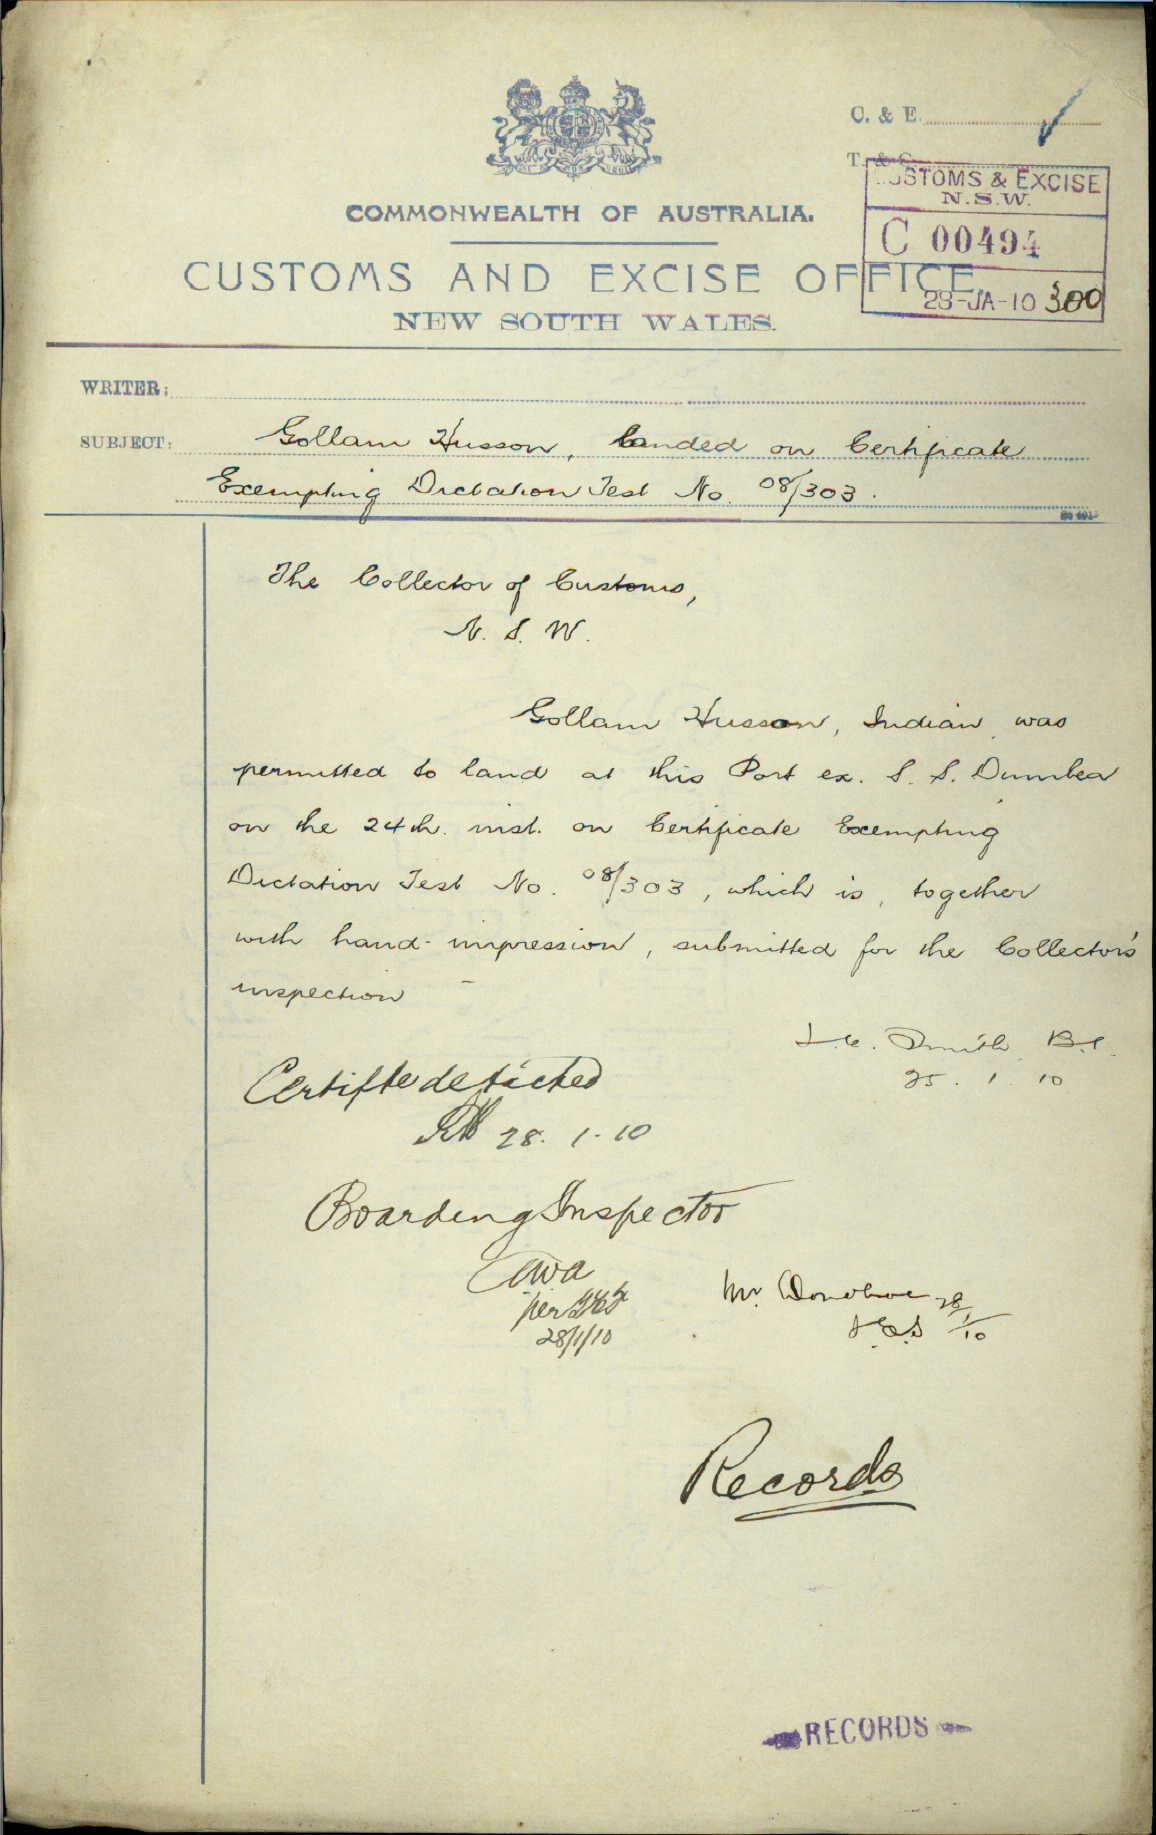 C. & E.
T. & C.
CUSTOMS & EXCISE
N.S.W.
C 00494
28-JA-10 300
COMMONWEALTH OF AUSTRALIA.
CUSTOMS AND EXCISE OFFICE
NEW SOUTH WALES.
WRITER:
SUBJECT: Gollam Husson, landed on Certificate
Exempting Dictation Test No. 08/303.
The Collector of Customs,
N. S. W.
Gollam Husson, Indian, was
permitted to land at this Port ex. S. S. Dumbea
on the 24th. inst. on Certificate Exempting
Dictation Test No. 08/303, which is, together
with hand-impression, submitted for the Collector's
inspection
Smith B.I.
25. 1. 10
Certifte detached
28. 1. 10
Boarding Inspector
per
28/1/10
Mr. Donohoe 28/1/10
Records
RECORDS